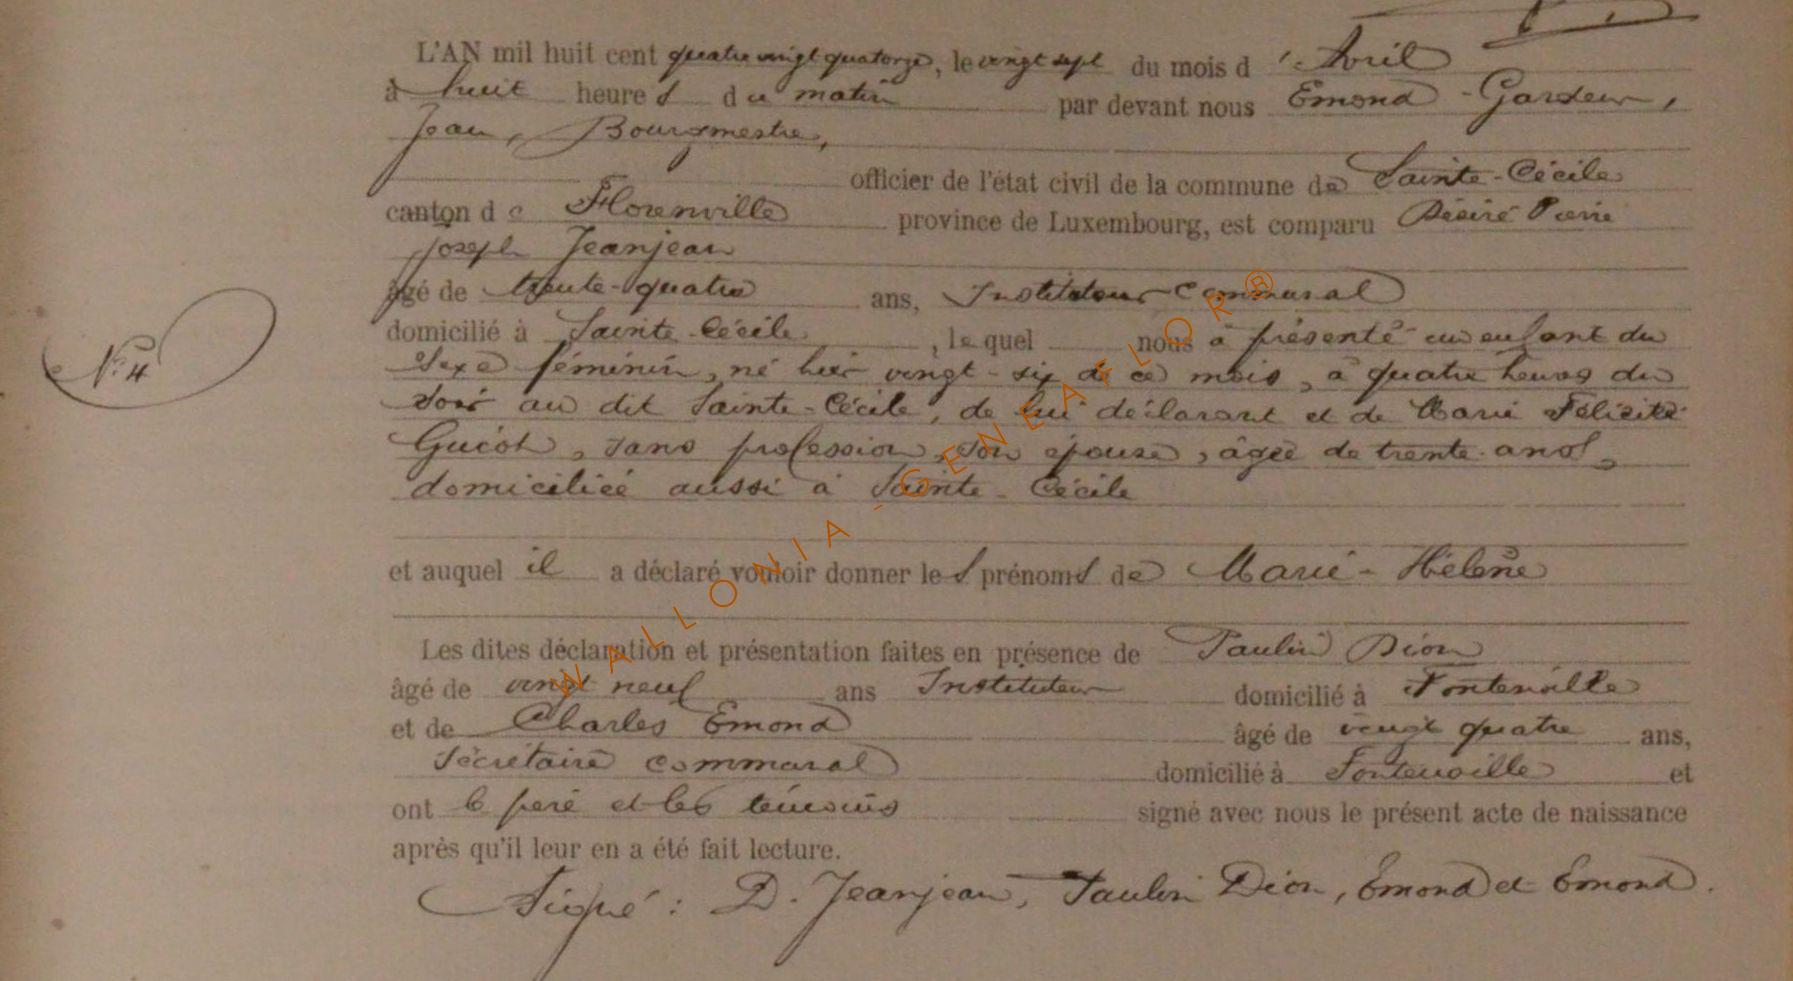 L'AN mil huit cent quatre vingt quatorze, le vingt sept du mois d'Avril
à huit heures du matin par devant nous Emond-Gardeur,
Jean, Bourgmestre,
officier de l'état civil de la commune de Sainte-Cécile
canton de Florenville province de Luxembourg, est comparu Désiré Pierre
Joseph Jeanjean
âgé de trente-quatre ans, Instituteur communal
domicilié à Sainte-Cécile, lequel nous a présenté un enfant du
Sexe féminin, né hier vingt-six de ce mois, à quatre heures du
soir au dit Sainte-Cécile, de lui déclarant et de Marie Félicité
Guiot, sans profession, son épouse, âgée de trente ans,
domiciliée aussi à Sainte-Cécile
N° 4
et auquel il a déclaré vouloir donner les prénoms de Marie-Hélène
Les dites déclaration et présentation faites en présence de Paulin Dion
âgé de vingt neuf ans Instituteur domicilié à Fontenoille
et de Charles Emond âgé de vingt quatre ans,
Secrétaire communal domicilié à Fontenoille et
ont le père et les témoins signé avec nous le présent acte de naissance
après qu'il leur en a été fait lecture.
Signé : D. Jeanjean, Paulin Dion, Emond et Emond.
WALLONIA-GENEAFLOR®